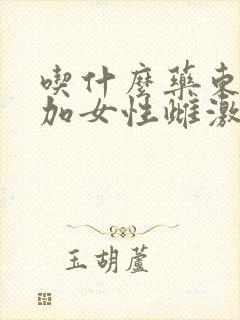 喫什麼藥東
加女性雌激
玉胡蘆